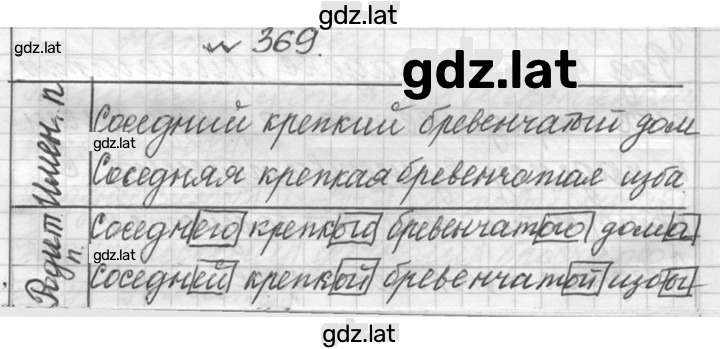 gdz.lat
gdz.lat
№ 369.
gdz.lat
Имен. п
Соседний крепкий бревенчатый дом
gdz.lat
Соседняя крепкая бревенчатая изба.
Родит п.
Соседнего крепкого бревенчатого дома
gdz.lat
Соседней крепкой бревенчатой избы
gdz.lat